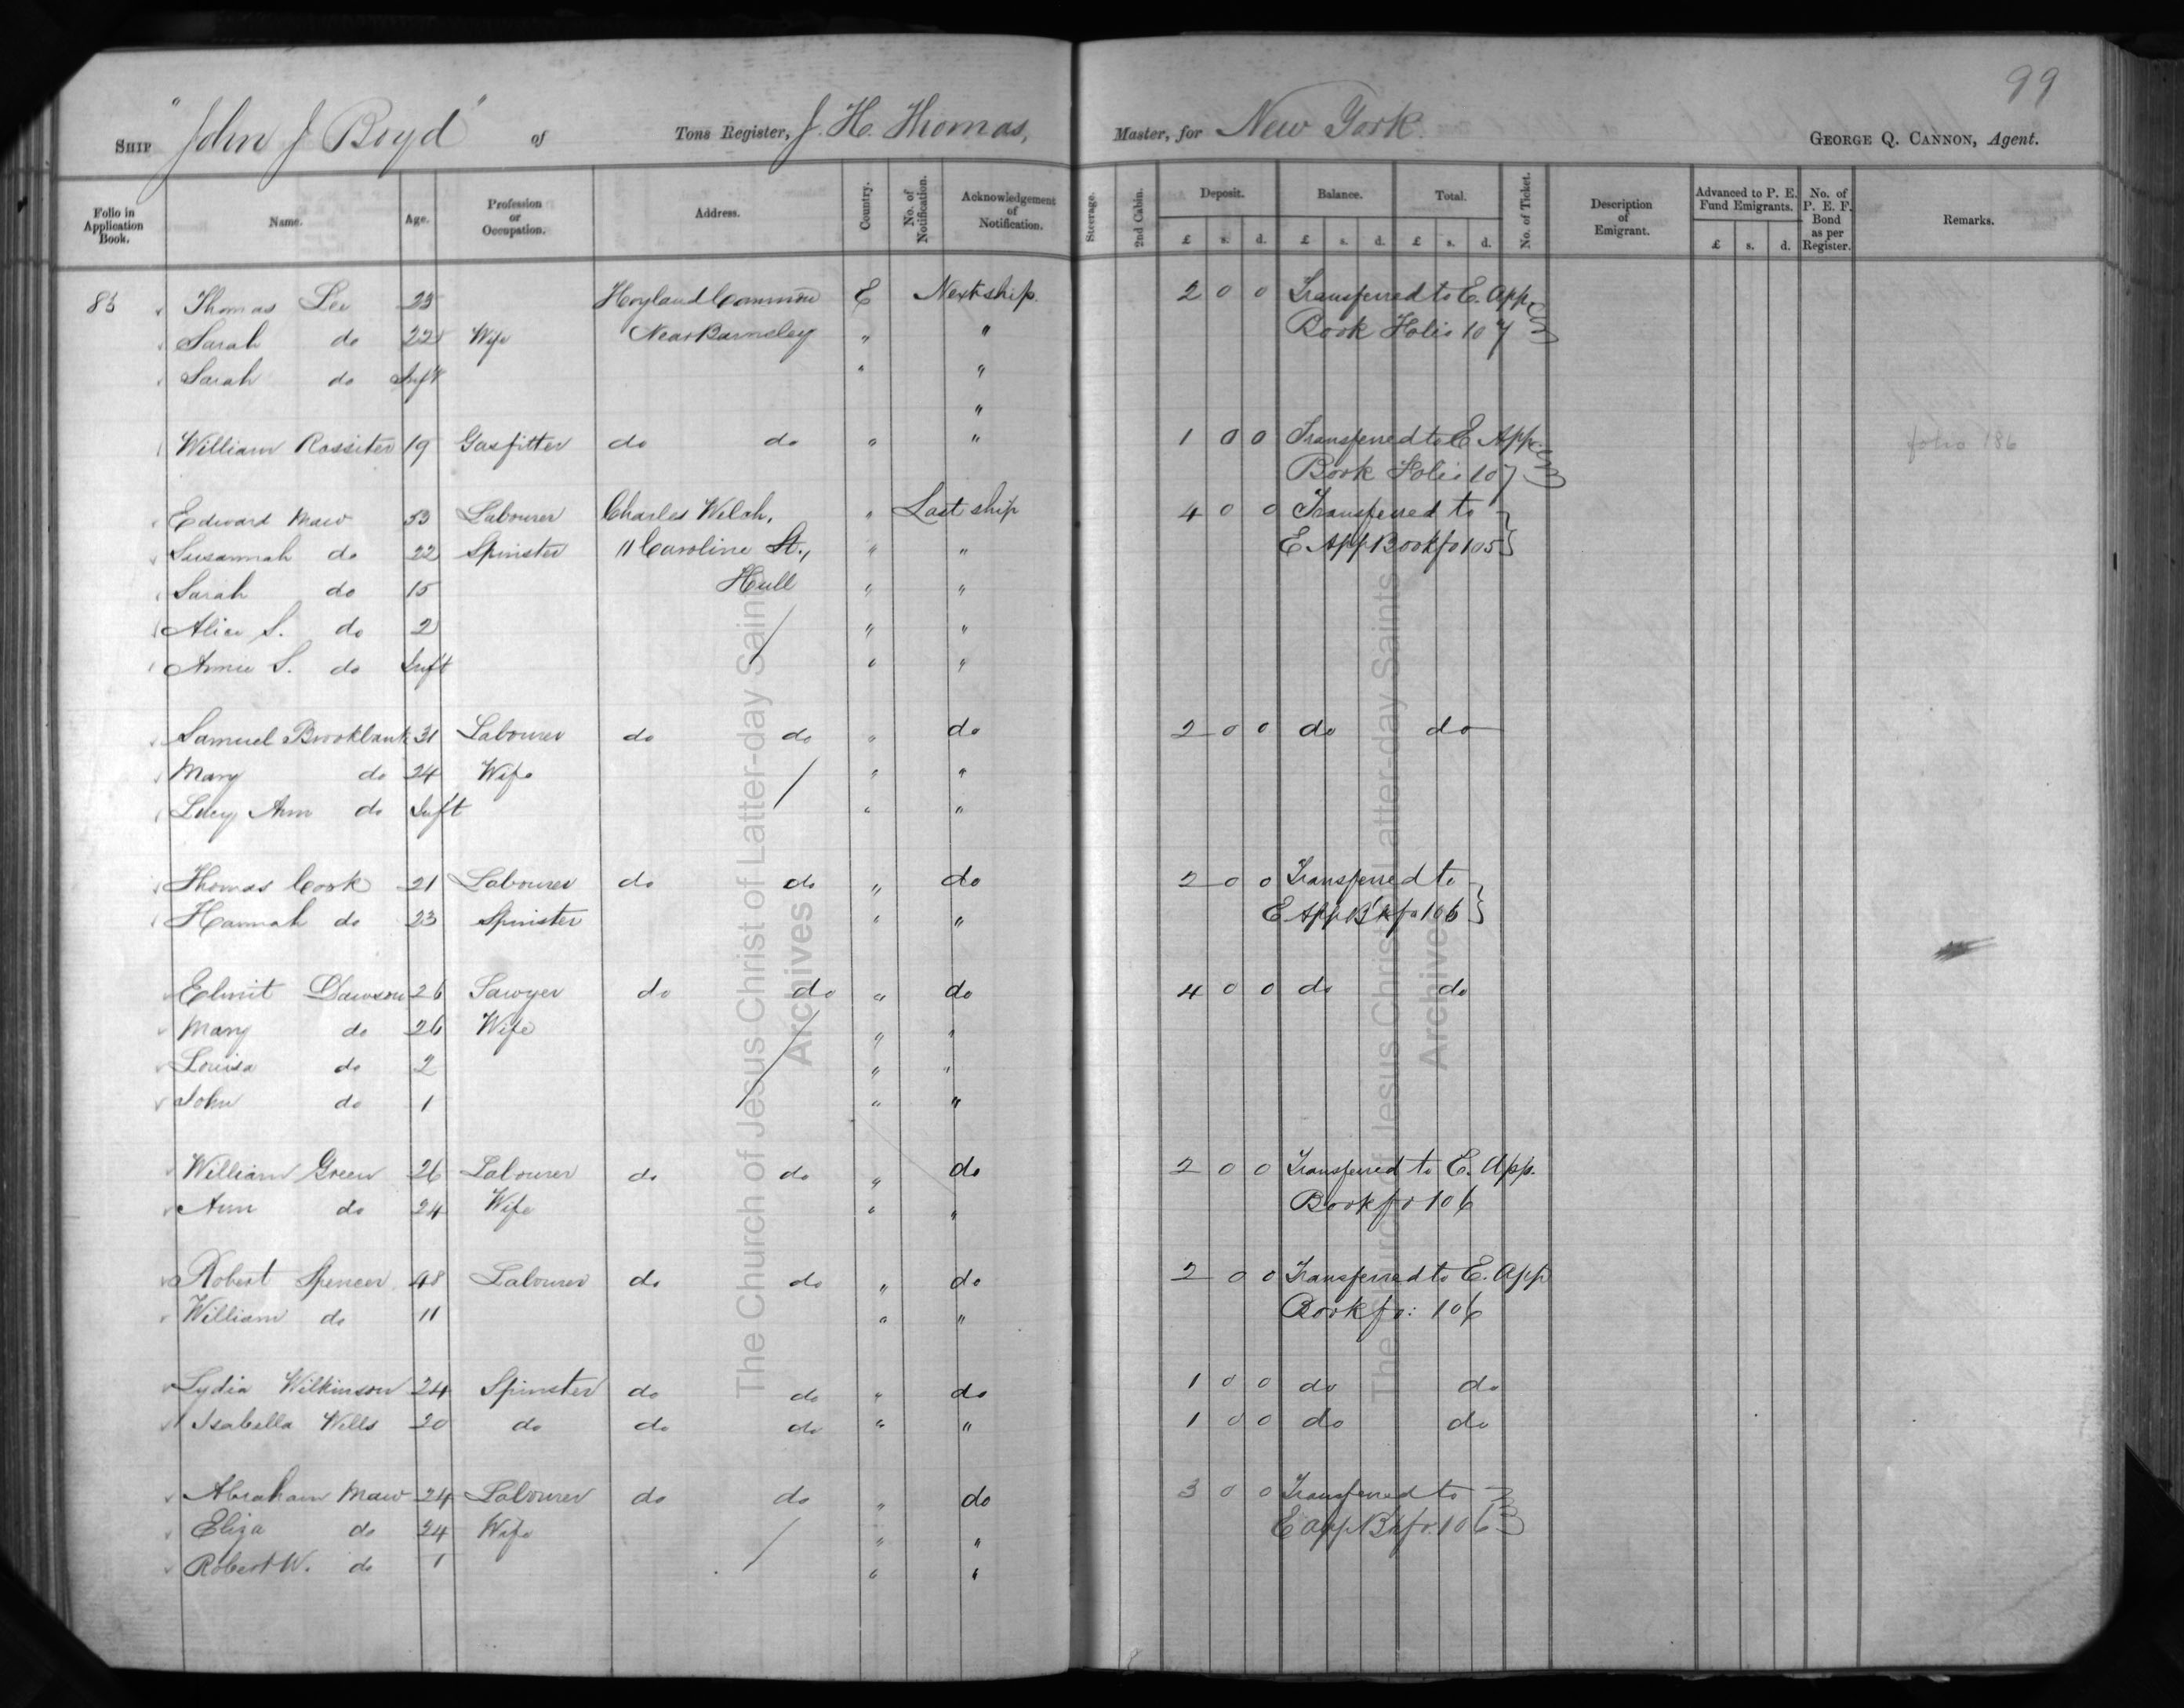 99
Ship "John J Boyd" of Tons Register, J. H. Thomas, Master, for New York. George Q. Cannon, Agent.
Folio in Application Book. Name. Age. Profession or Occupation. Address. Country. No. of Notification. Acknowledgement of Notification. Steerage. 2nd Cabin. Deposit. Balance. Total. No. of Ticket. Description of Emigrant. Advanced to P. E. Fund Emigrants. No. of P. E. F. Bond as per Register. Remarks.
£ s. d. £ s. d. £ s. d. £ s. d.
85 Thomas Lee 23 Hoyland Common E Next ship. 2 0 0 Transferred to E. App.
Sarah do 22 Wife Near Barnsley " " Book Folio 107
Sarah do Inft " "
"
William Rossiter 19 Gasfitter do do " " 1 0 0 Transferred to E App. folio 186
Book Folio 107
Edward Maw 53 Labourer Charles Welch, " Last ship 4 0 0 Transferred to
Susannah do 22 Spinster 11 Caroline St., " " E App Book fo 105
Sarah do 15 Hull " "
Alice S. do 2 " "
Annie S. do Inft " "
Samuel Brooklank 31 Labourer do do " do 2 0 0 do do
Mary do 24 Wife " "
Lucy Ann do Inft " "
Thomas Cook 21 Labourer do do " do 2 0 0 Transferred to
Hannah do 23 Spinster " " E App B'k fo 106
Elmit Dawson 26 Sawyer do do " do 4 0 0 do do
Mary do 26 Wife " "
Louisa do 2 " "
John do 1 " "
William Green 26 Labourer do do " do 2 0 0 Transferred to E. App.
Ann do 24 Wife " " Book fo 106
Robert Spencer 48 Labourer do do " do 2 0 0 Transferred to E. App
William do 11 " " Book fo: 106
Lydia Wilkinson 24 Spinster do do " do 1 0 0 do do
Isabella Wells 20 do do do " " 1 0 0 do do
Abraham Maw 24 Labourer do do " do 3 0 0 Transferred to
Eliza do 24 Wife " " E App B'k fo. 106
Robert W. do 1 " "
The Church of Jesus Christ of Latter-day Saints
Archives
The Church of Jesus Christ of Latter-day Saints
Archives